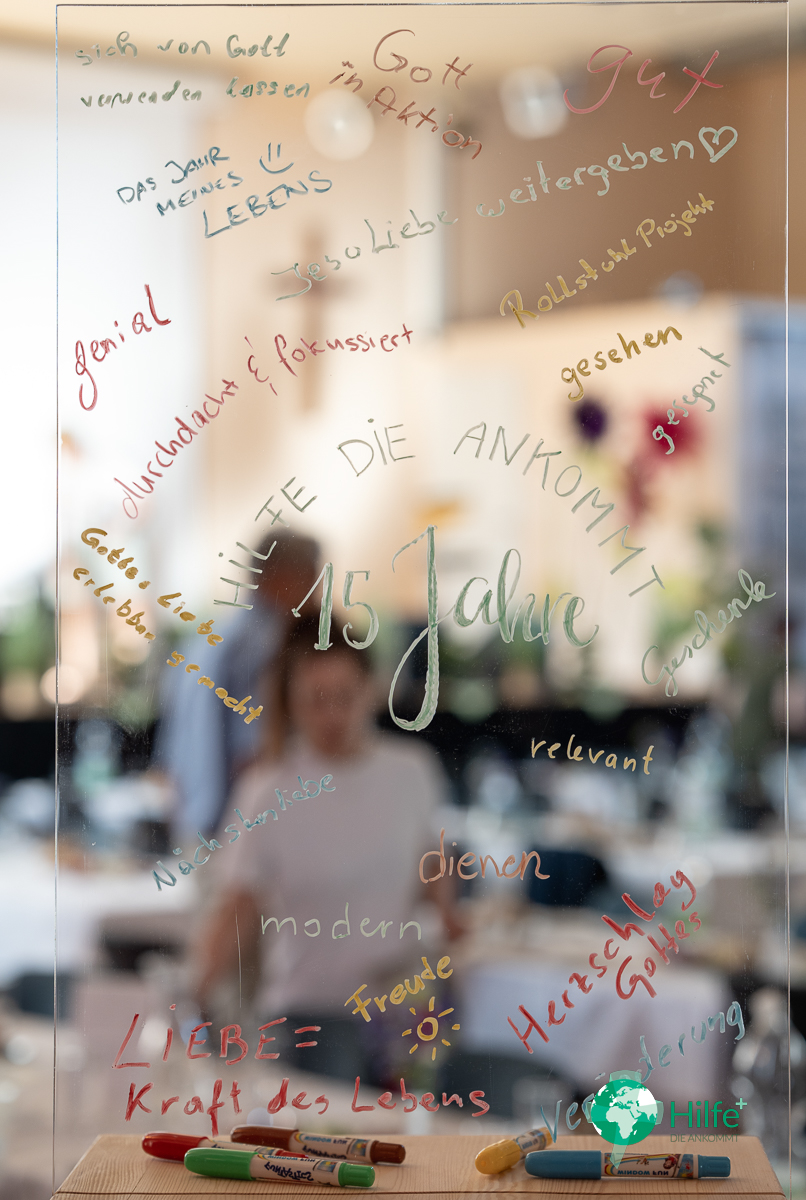 sich von Gott
verwenden lassen
Gott
in Aktion
gut
DAS JAHR
MEINES
LEBENS
Jesu Liebe weitergeben
Rollstuhl Projekt
genial
durchdacht & fokussiert
gesehen
gesegnet
HILFE DIE ANKOMMT
15 Jahre
Gottes Liebe
erlebbar gemacht
Geschenke
relevant
Nächstenliebe
dienen
modern
Herzschlag
Gottes
Freude
LIEBE =
Kraft des Lebens
veränderung
Hilfe+
DIE ANKOMMT